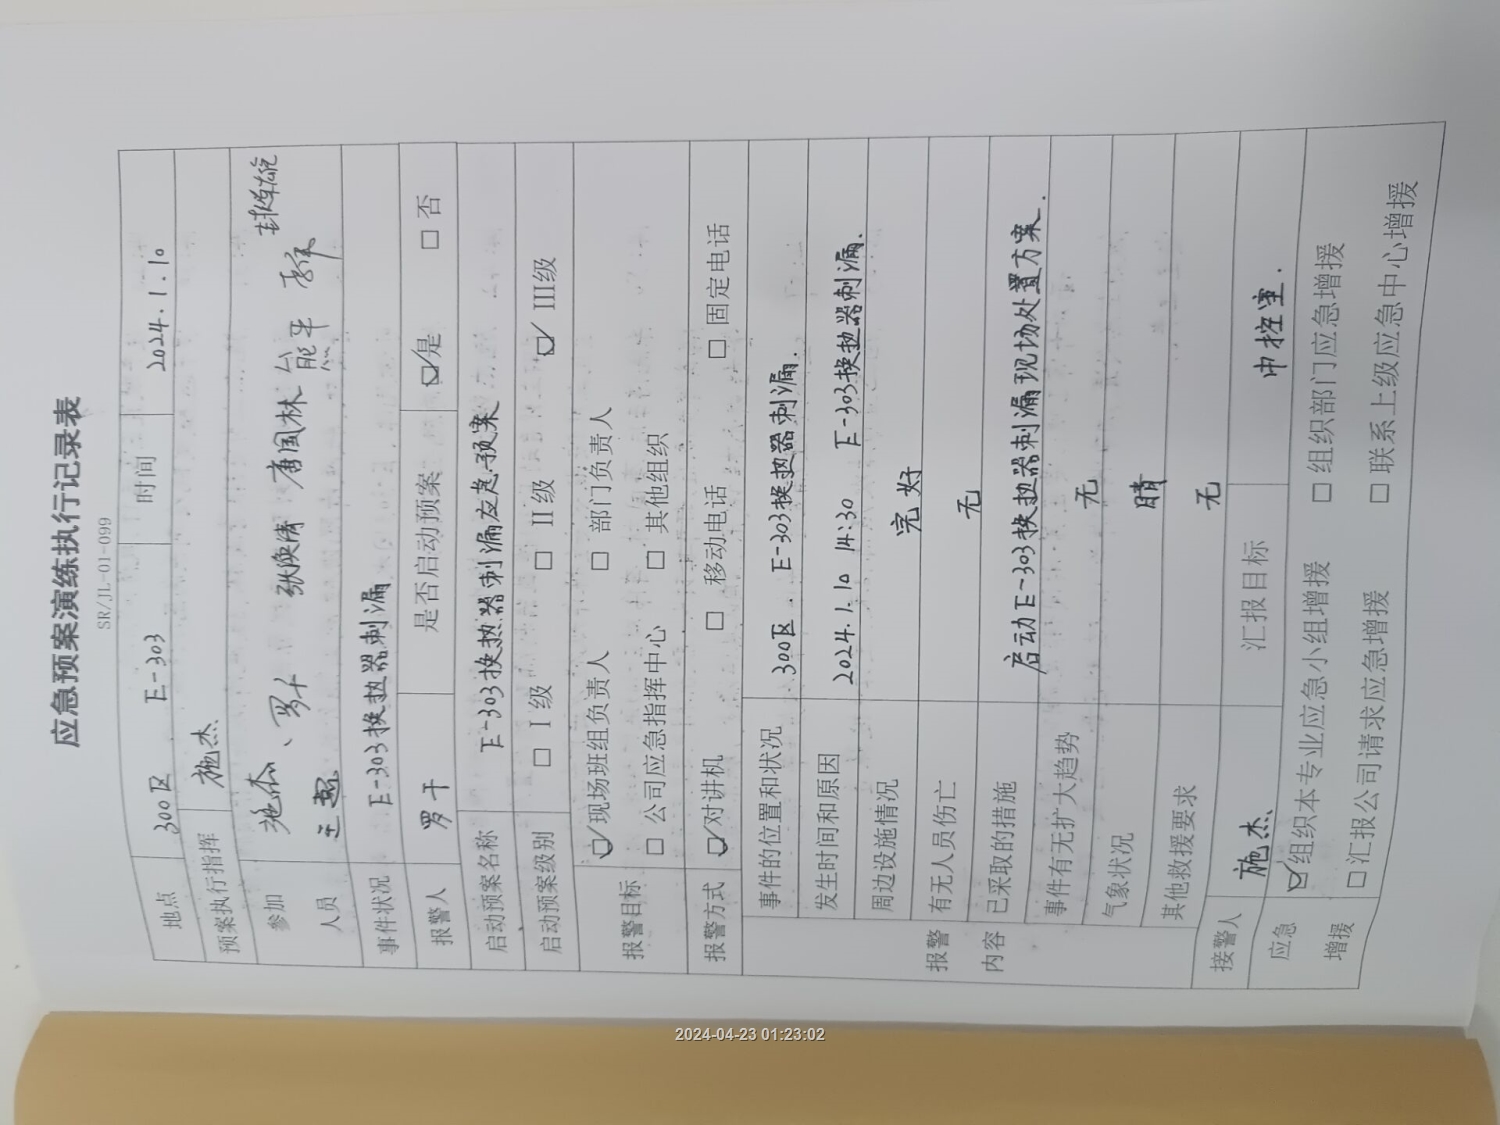 应急预案演练执行记录表
SR/JL-01-099
地点 300区 E-303 时间 2024.1.10
预案执行指挥 施杰
参加人员 施杰、罗干 张焕清 唐国林 熊平
事件状况 E-303换热器刺漏
报警人 罗干 是否启动预案 ☑是 □否
启动预案名称 E-303换热器刺漏应急预案
启动预案级别 □ I级 □ II级 ☑ III级
报警目标 ☑现场班组负责人 □ 部门负责人
□ 公司应急指挥中心 □ 其他组织
报警方式 ☑对讲机 □ 移动电话 □ 固定电话
报警内容
事件的位置和状况 300区. E-303换热器刺漏.
发生时间和原因 2024.1.10 14:30 E-303换热器刺漏.
周边设施情况 完好
有无人员伤亡 无
已采取的措施 启动E-303换热器刺漏现场处置方案.
事件有无扩大趋势 无
气象状况 晴
其他救援要求 无
接警人 施杰 汇报目标 中控室.
应急增援 ☑组织本专业应急小组增援 □ 组织部门应急增援
□ 汇报公司请求应急增援 □ 联系上级应急中心增援
2024-04-23 01:23:02